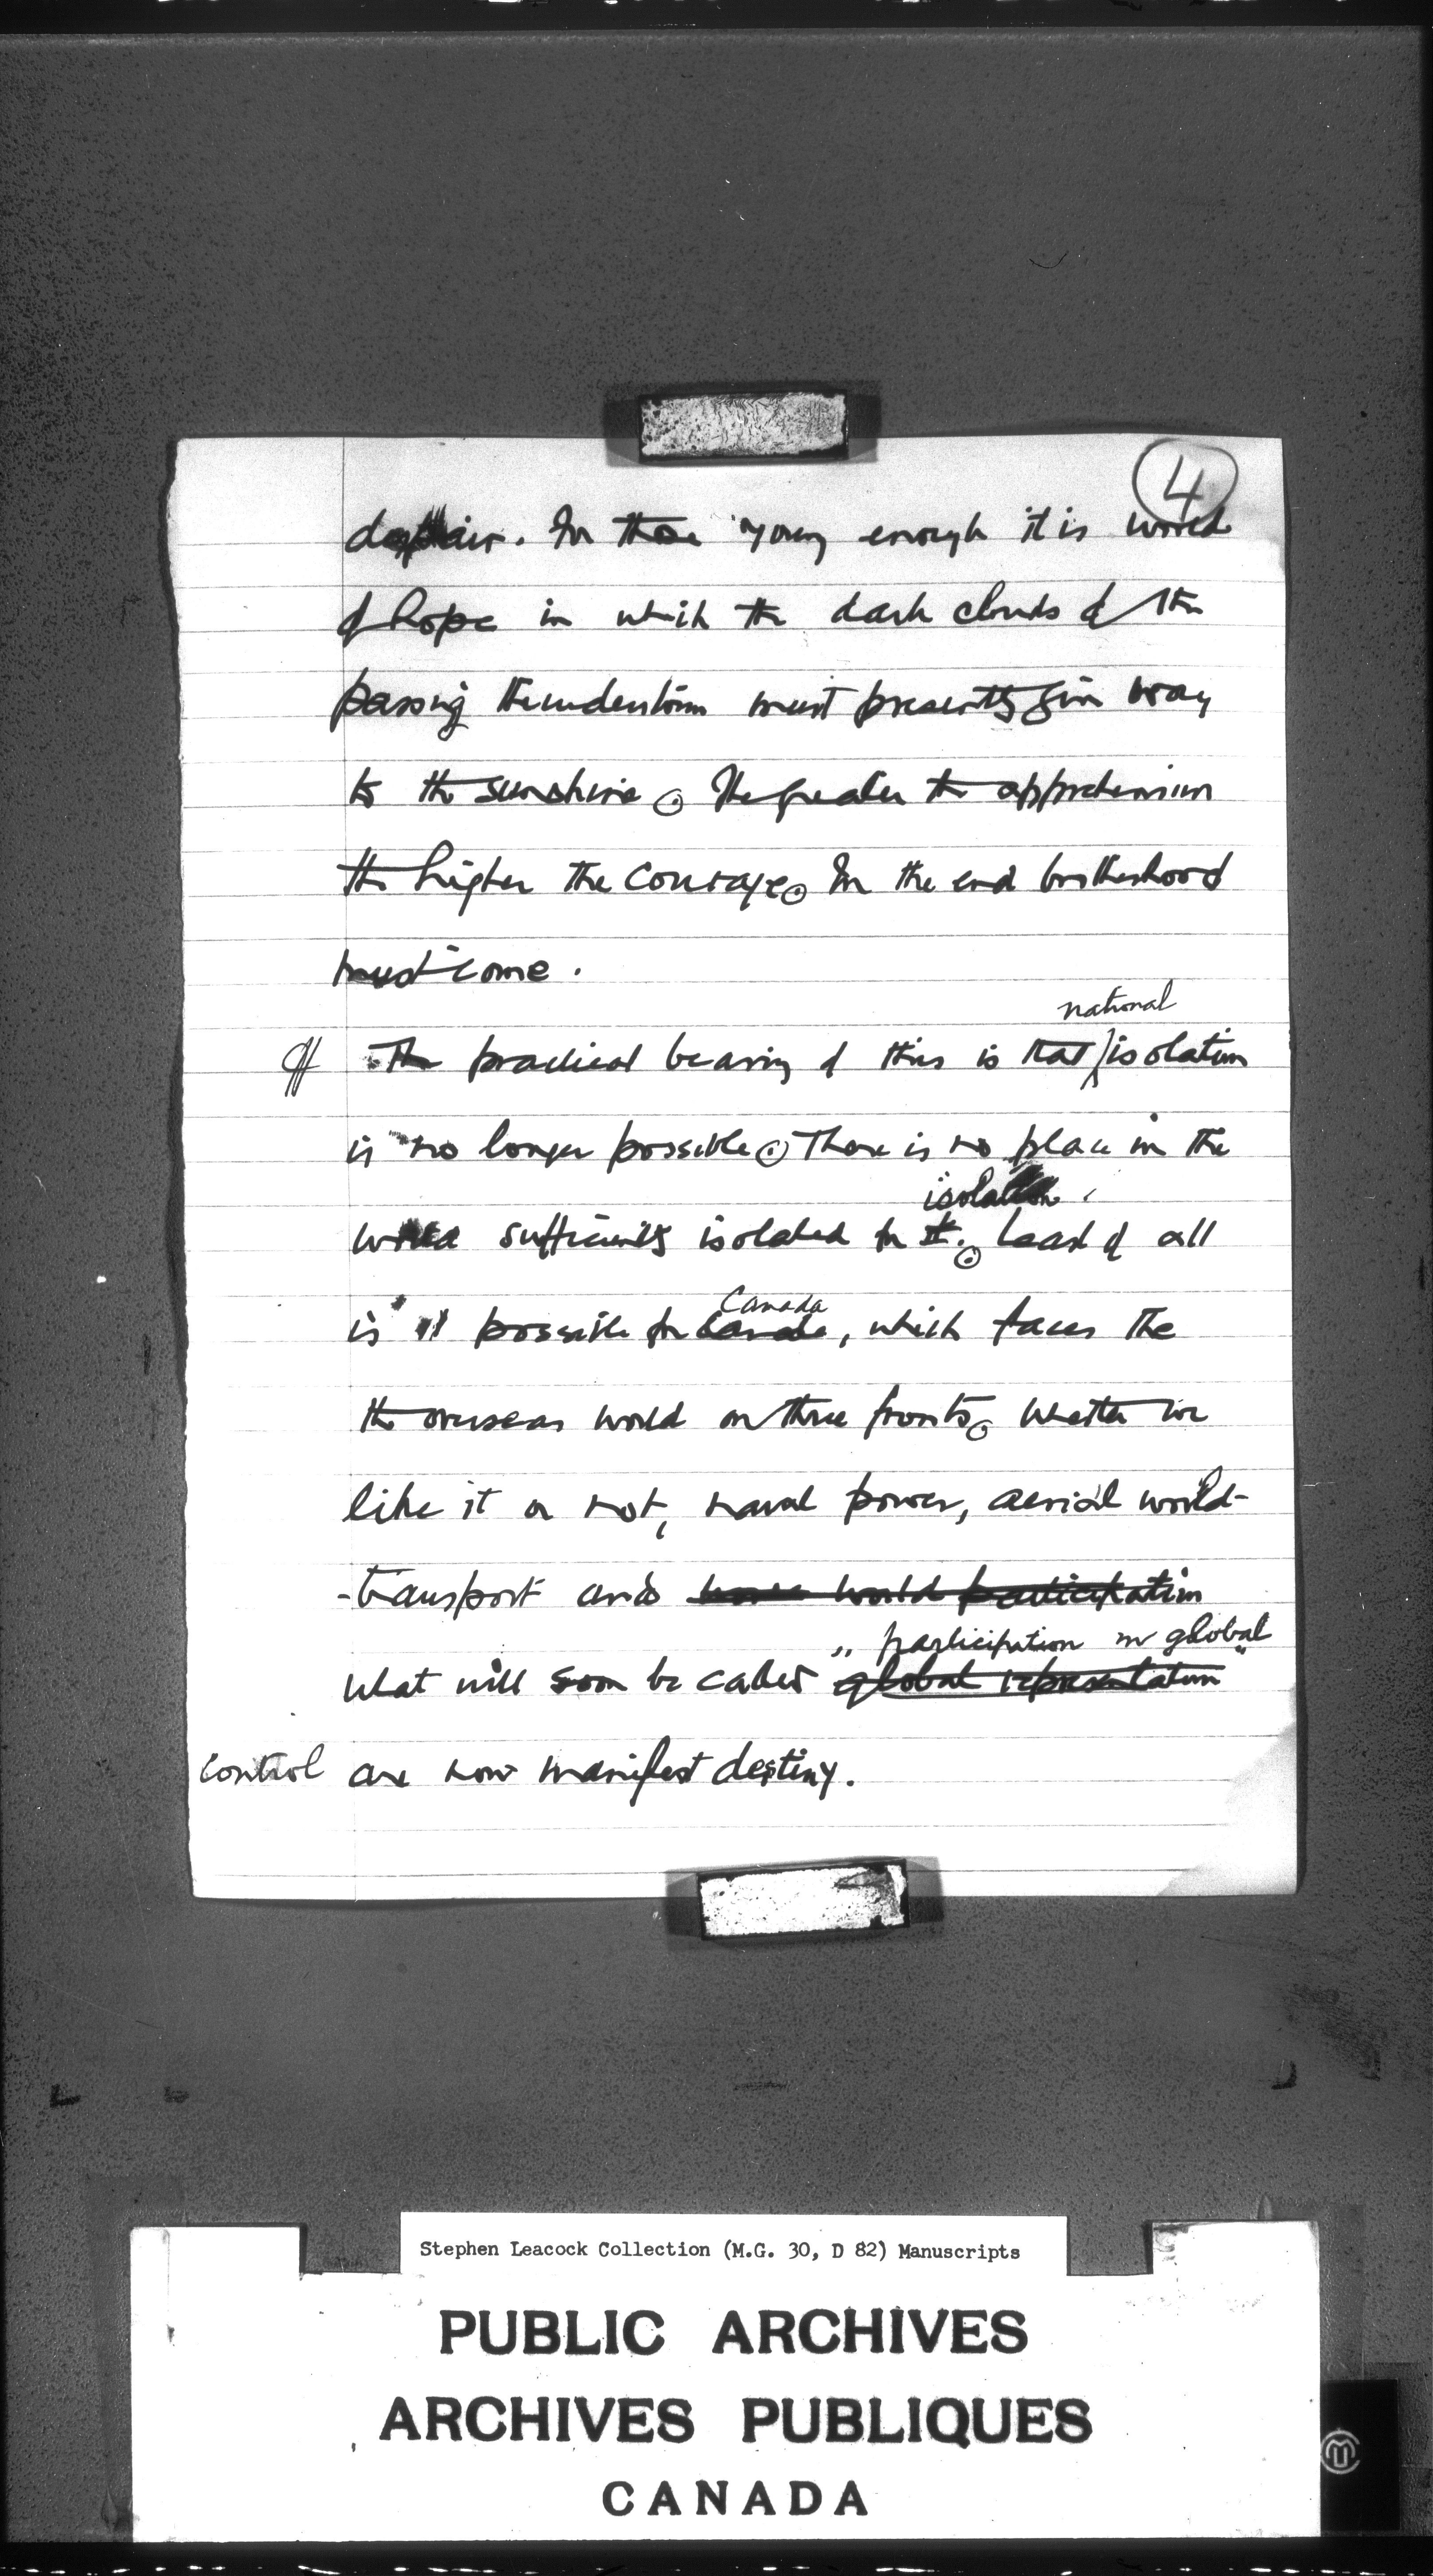 4
despair. For those young enough it is world
of hope in which the dark clouds of the
passing thunderstorm must presently give way
to the sunshine. The greater the apprehension
the higher the courage. In the end brotherhood
must come.
national
The practical bearing of this is that isolation
is no longer possible. There is no place in the
isolation.
world sufficiently isolated for it. Least of all
Canada
is it possible for Canada, which faces the
the overseas world on three fronts. Whether we
like it or not, naval power, aerial world-
-transport and world participation
"participation in global
what will soon be called global representation"
control are now manifest destiny.
Stephen Leacock Collection (M.G. 30, D 82) Manuscripts
PUBLIC ARCHIVES
ARCHIVES PUBLIQUES
CANADA